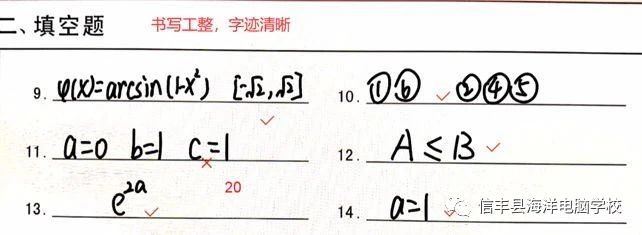 二、填空题 书写工整，字迹清晰
9. φ(x)=arcsin(1-x²) [-√2,√2] 10. ①⑥ ②④⑤
11. a=0 b=1 c=1 12. A≤B
20
13. e^{2a} 14. a=1
信丰县海洋电脑学校